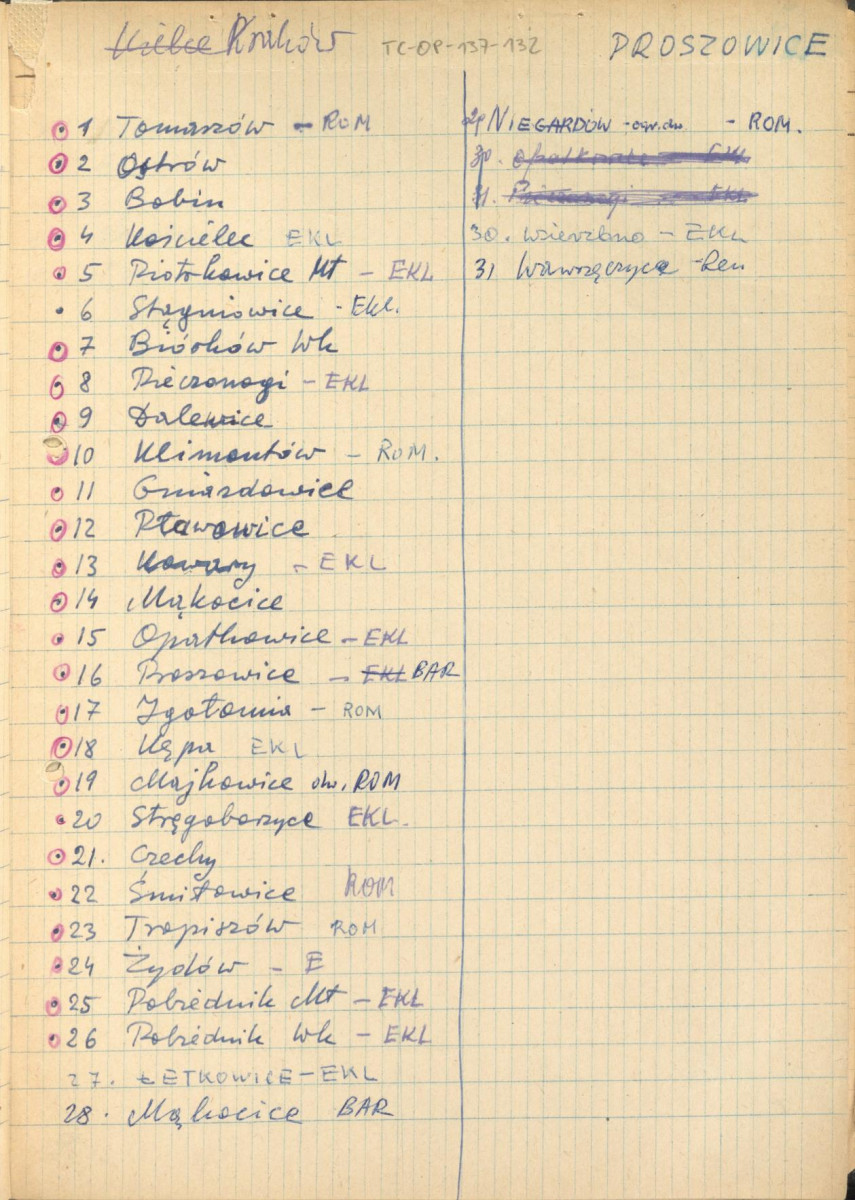 Kielce Kraków TC-OP-137-132 PROSZOWICE
1 Tomaszów - ROM
2 Ostrów
3 Bobin
4 Kościelec EKL
5 Piotrkowice Mł - EKL
6 Stągniowice - EKL.
7 Biórków Wk
8 Pieczonogi - EKL
9 Dalewice
10 Klimontów - ROM.
11 Gniazdowice
12 Pławowice
13 Kowary - EKL
14 Mąkocice
15 Opatkowice - EKL
16 Proszowice - EKL BAR
17 Igołomia - ROM
18 Kępa EKL
19 Majkowice dw. ROM
20 Stręgoborzyce EKL.
21. Czechy
22 Śmiłowice ROM
23 Tropiszów ROM
24 Żydów - E
25 Pobiednik Mł - EKL
26 Pobiednik Wk - EKL
27. ŁETKOWICE - EKL
28. Mąkocice BAR
29 NIEGARDÓW - ogr. dw. - ROM.
30. Opatkowice - EKL
31. Pieczonogi - EKL
30. Wierzbno - EKL
31 Wawrzęczyce - Ren